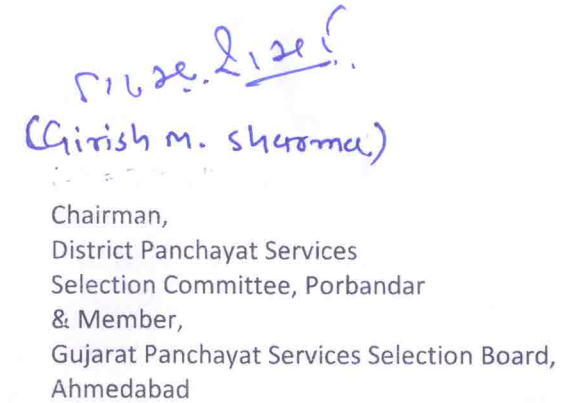 (Girish M. Sharma)
Chairman,
District Panchayat Services
Selection Committee, Porbandar
& Member,
Gujarat Panchayat Services Selection Board,
Ahmedabad